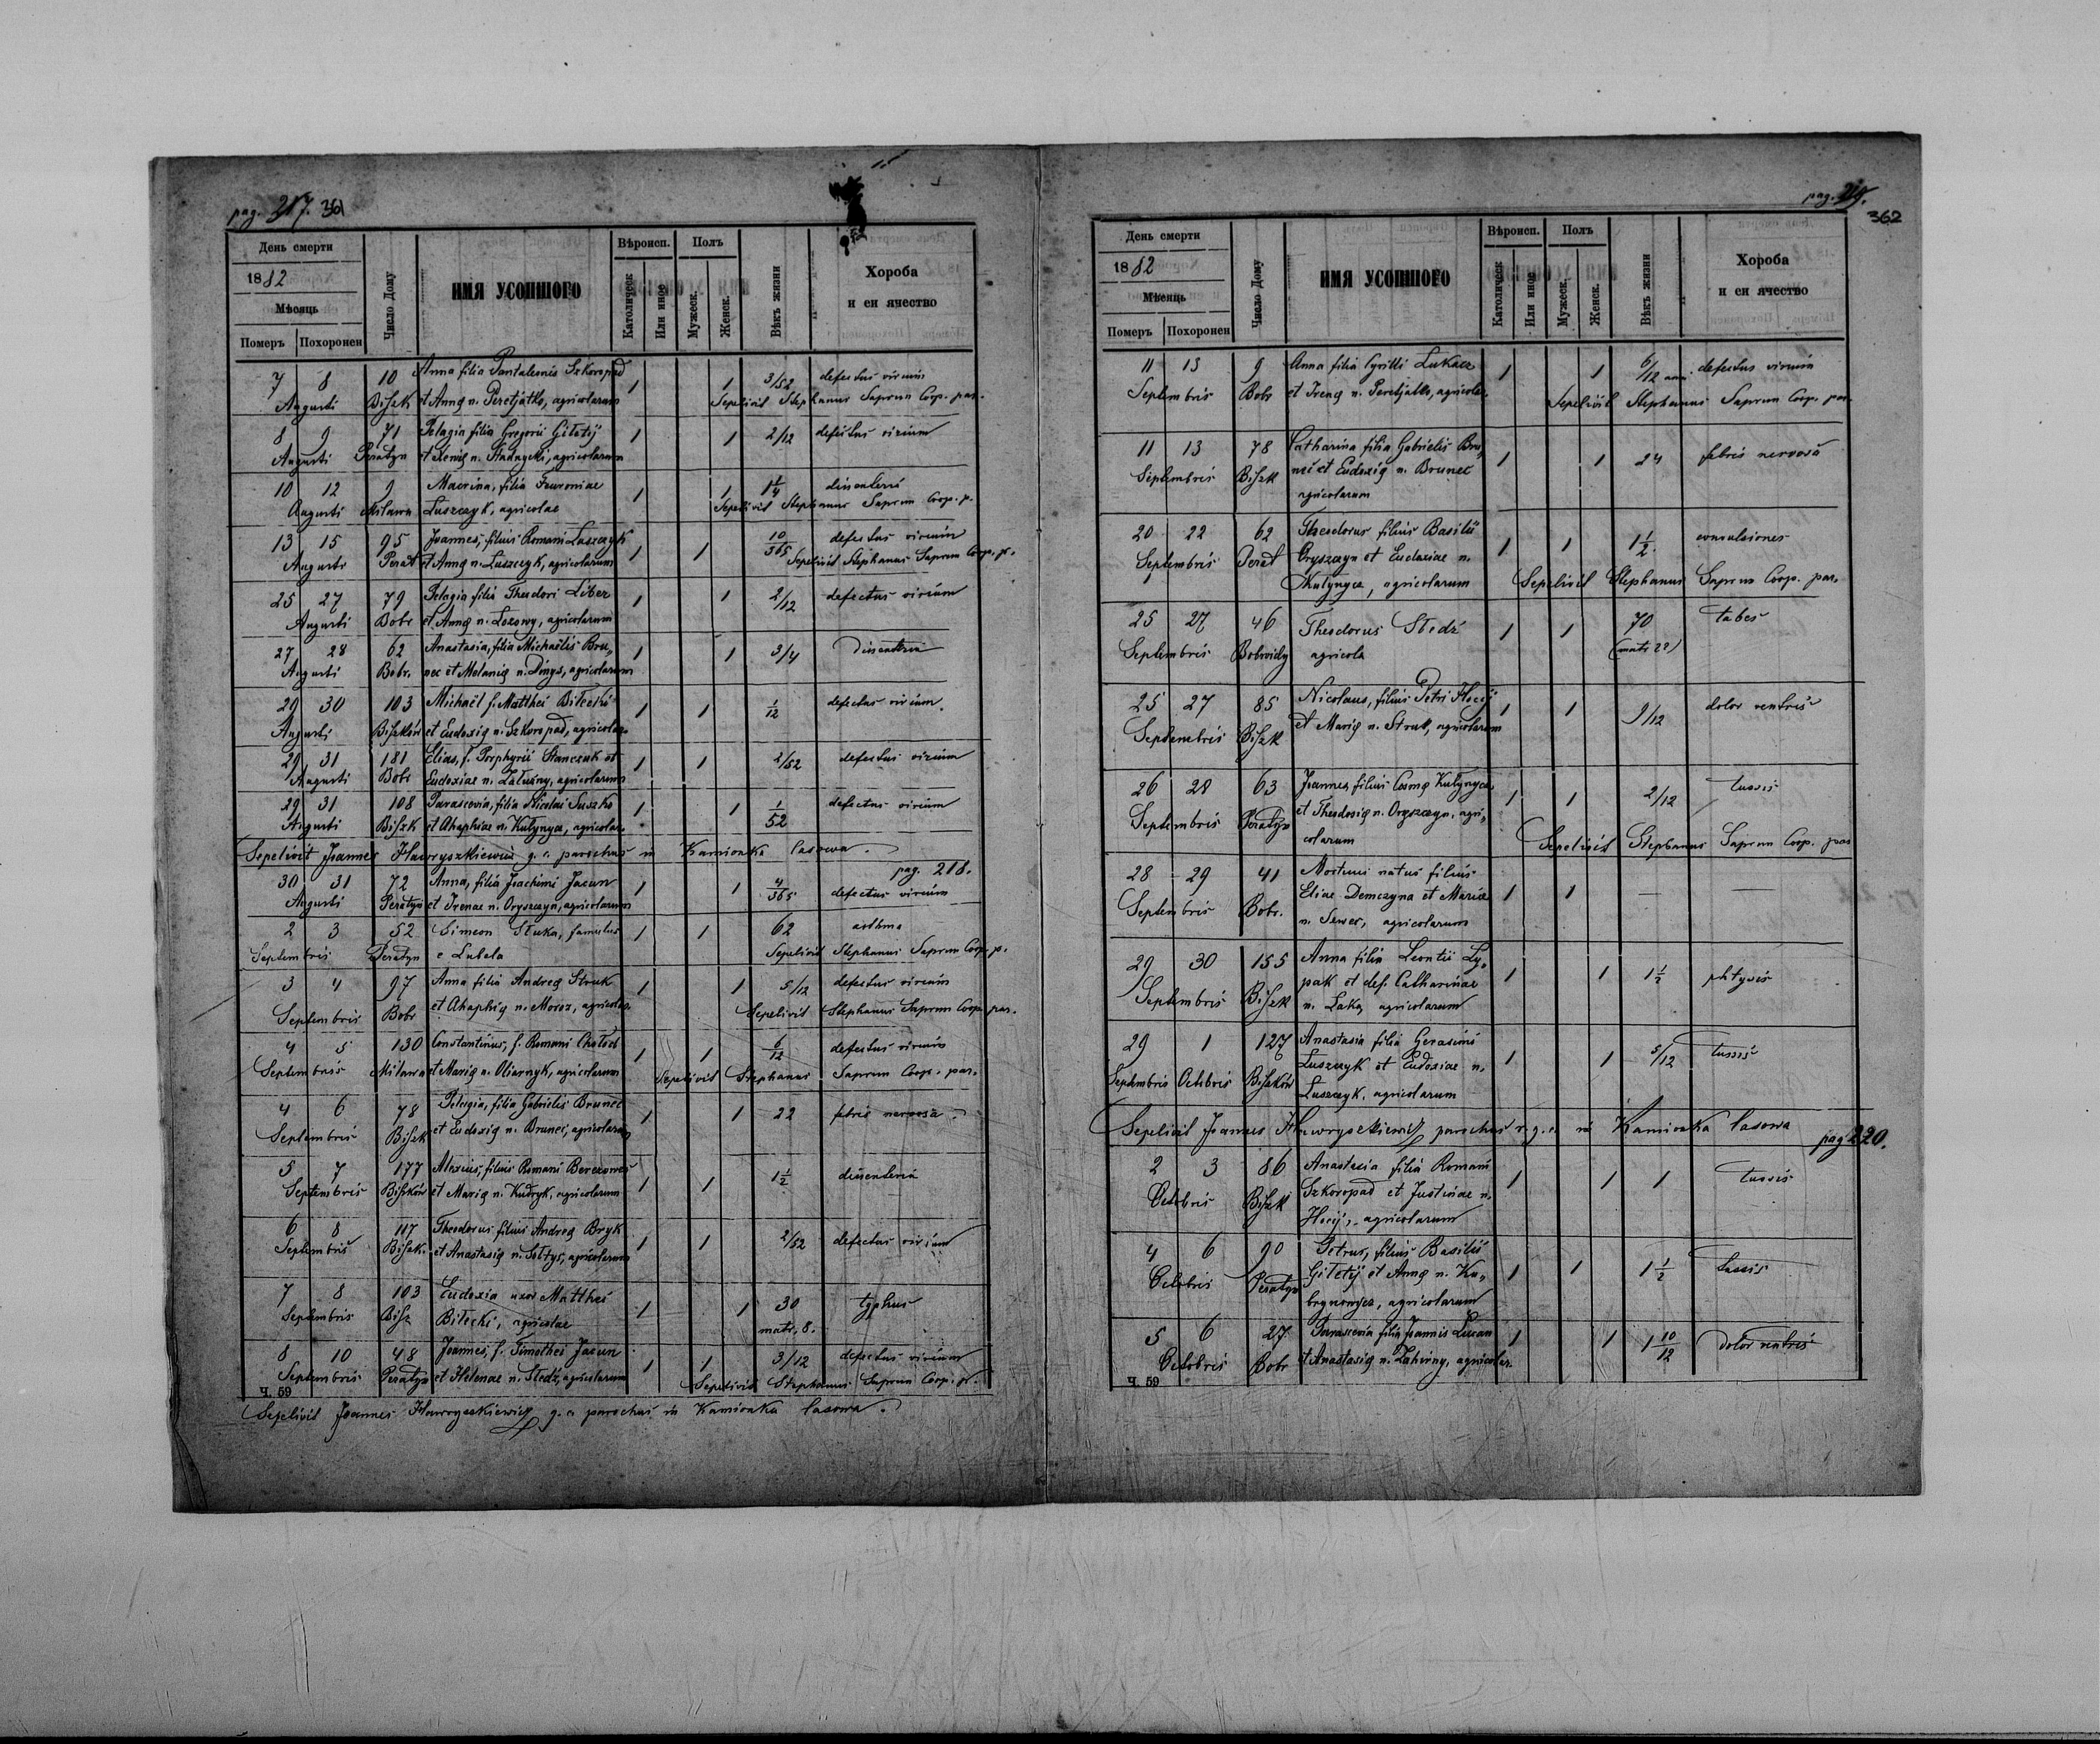 pag. 217. 361
День смерти
1882
Мѣсяць
Померъ Похоронен
Число Дому
ИМЯ УСОПШОГО
Вѣроисп.
Католическ
Или иное
Полъ
Мужеск.
Женск.
Вѣкъ жизни
Хороба
и еи ячество
7 8 10 Anna filia Pantalemis Szkoropad 1 1 3/52 defectus virium
Augusti Biszk et Anna n. Peretjatko, agricolarum Sepelivit Stephanus Saprun Coop. par.
8 9 71 Pelagia filia Gregorii Giletij 1 1 2/12 defectus virium
Augusti Peratyn et Xenia n. Stadnycki, agricolarum
10 12 9 Macrina, filia 1 1 1 1/4 disenteria
Augusti Milawa Luszczyk, agricolae Sepelivit Stephanus Saprun Coop. p.
13 15 95 Joannes, filius Romani Luszczyk 1 1 10/365 defectus virium
Augusti Perat et Anna n. Luszczyk, agricolarum Sepelivit Stephanus Saprun Coop. p.
25 27 79 Pelagia filia Theodori Liber 1 1 2/12 defectus virium
Augusti Bobr et Anna n. Lozowy, agricolarum
27 28 62 Anastasia, filia Michaëlis Bru„ 1 1 3/4 Disenteria
Augusti Bobr. nec et Melania n. Dinys, agricolarum
29 30 103 Michaël f. Matthei Bilecki 1 1 1/12 defectus virium.
Augusti Biszków et Eudoxia n. Szkoropad, agricolar.
29 31 181 Elias, f. Porphyrii Stanczuk et 1 1 2/52 defectus virium
Augusti Bobr Eudoxiae n. Zalużny, agricolarum
29 31 108 Parascevia, filia Nicolai Suszko 1 1 1/52 defectus virium
Augusti Biszk et Ahaphiae n. Kulynycz, agricolar.
Sepelivit Joannes Hawryszkiewicz g. c. parochus in Kamionka lasowa.
pag. 218.
30 31 72 Anna, filia Joachimi Jacun 1 1 4/365 defectus virium
Augusti Peratyn et Irenae n. Oryszczyn, agricolarum
2 3 52 Simeon Stuka, famulus 1 1 62 asthma
Septembris Peratyn e Lubela Sepelivit Stephanus Saprun Coop. p.
3 4 97 Anna filia Andrea Struk 1 1 5/12 defectus virium
Septembris Bobr et Ahaphia n. Moroz, agricolar. Sepelivit Stephanus Saprun Coop. par.
4 5 130 Constantinus, f. Romani Chołod 1 1 6/12 defectus virium
Septembris Milawa et Maria n. Oliarnyk, agricolarum Sepelivit Stephanus Saprun Coop. par.
4 6 78 Pelagia, filia Gabrielis Brunec 1 1 22 febris nervosa
Septembris Biszk et Eudoxia n. Brunec, agricolarum
5 7 177 Alexius, filius Romani 1 1 1 1/2 disenteria
Septembris Biszków et Maria n. Kudryk, agricolarum
6 8 117 Theodorus filius Andrea Bryk 1 1 2/52 defectus virium
Septembris Biszk. et Anastasia n. Sołtys, agricolarum
7 8 103 Eudoxia uxor Matthei 1 1 30 typhus
Septembris Bisz Bilecki, agricolae matr. 8.
8 10 48 Joannes, f. Timothei Jacun 1 1 3/12 defectus virium
Septembris Peratyn et Helenae n. Śledź, agricolarum Sepelivit Stephanus Saprun Coop. p.
Ч. 59
Sepelivit Joannes Hawryszkiewicz g. c. parochus in Kamionka lasowa.
pag. 219.
362
День смерти
1882
Мѣсяць
Померъ Похоронен
Число Дому
ИМЯ УСОПШОГО
Вѣроисп.
Католическ
Или иное
Полъ
Мужеск.
Женск.
Вѣкъ жизни
Хороба
и еи ячество
11 13 9 Anna filia Cyrilli Lukacz 1 1 6/12 anni defectus virium
Septembris Bobr et Irena n. Peretjatko, agricolar. Sepelivit Stephanus Saprun Coop. par.
11 13 78 Catharina filia Gabrielis Bru„ 1 1 24 febris nervosa
Septembris Biszk nec et Eudoxia n. Brunec
agricolarum
20 22 62 Theodorus filius Basilii 1 1 1 1/2. convulsiones
Septembris Perat Oryszczyn et Eudoxiae n.
Kulynycz, agricolarum Sepelivit Stephanus Saprun Coop. par.
25 27 46 Theodorus Śledź 1 1 70 tabes
Septembris Bobroidy agricola (matr 22)
25 27 85 Nicolaus, filius Petri Hocij 1 1 9/12 dolor ventris
Septembris Biszk et Maria n. Struk, agricolarum
26 28 63 Joannes filius Cosma Kulynycz 1 1 2/12 tussis
Septembris Peratyn et Theodosia n. Oryszczyn, agri„
colarum Sepelivit Stephanus Saprun Coop. par
28 29 41 Mortuus natus filius 1 1 — —
Septembris Bobr. Eliae Demczyna et Maria
n. Szwec, agricolarum
29 30 155 Anna filia Leontii Ly„ 1 1 1 1/2 phtysis
Septembris Biszk pak et def. Catharinae
n. Laka, agricolarum
29 1 127 Anastasia filia Gerasimi 1 1 5/12 tussis
Septembris Octobris Biszków Luszczyk et Eudoxiae n.
Luszczyk, agricolarum
Sepelivit Joannes Hawryszkiewicz parochus r. g. c. in Kamionka lasowa
pag 220.
2 3 86 Anastasia filia Romani 1 1 1 tussis
Octobris Biszk Szkoropad et Justinae n.
Hocij, agricolarum
4 6 90 Petrus, filius Basilii 1 1 1 1/2 tussis
Octobris Peratyn Giletij et Anna n. Ku„
agricolarum
5 6 27 Parascevia filia Joannis Lucan 1 1 1 10/12 Dolor ventris
Octobris Bobr et Anastasia n. Zahirny, agricolar.
Ч. 59